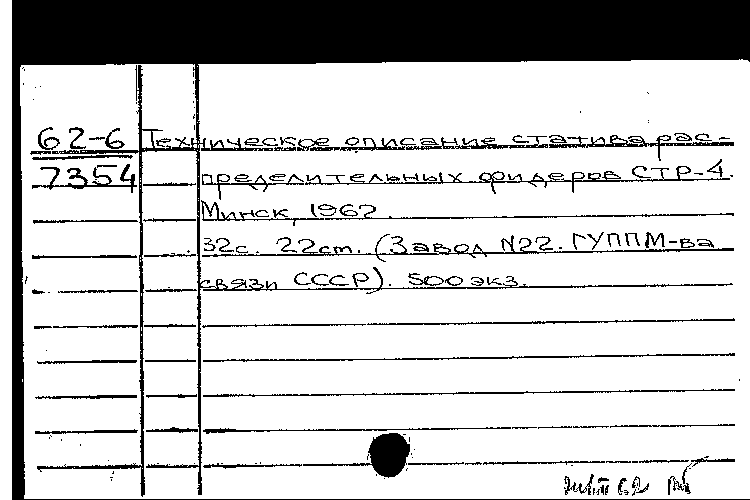 62-6 Техническое описание статива рас-
7354 пределительных фидеров СТР-4.
Минск, 1962.
32с. 22см. (Завод №22. ГУППМ-ва
связи СССР). 500 экз.